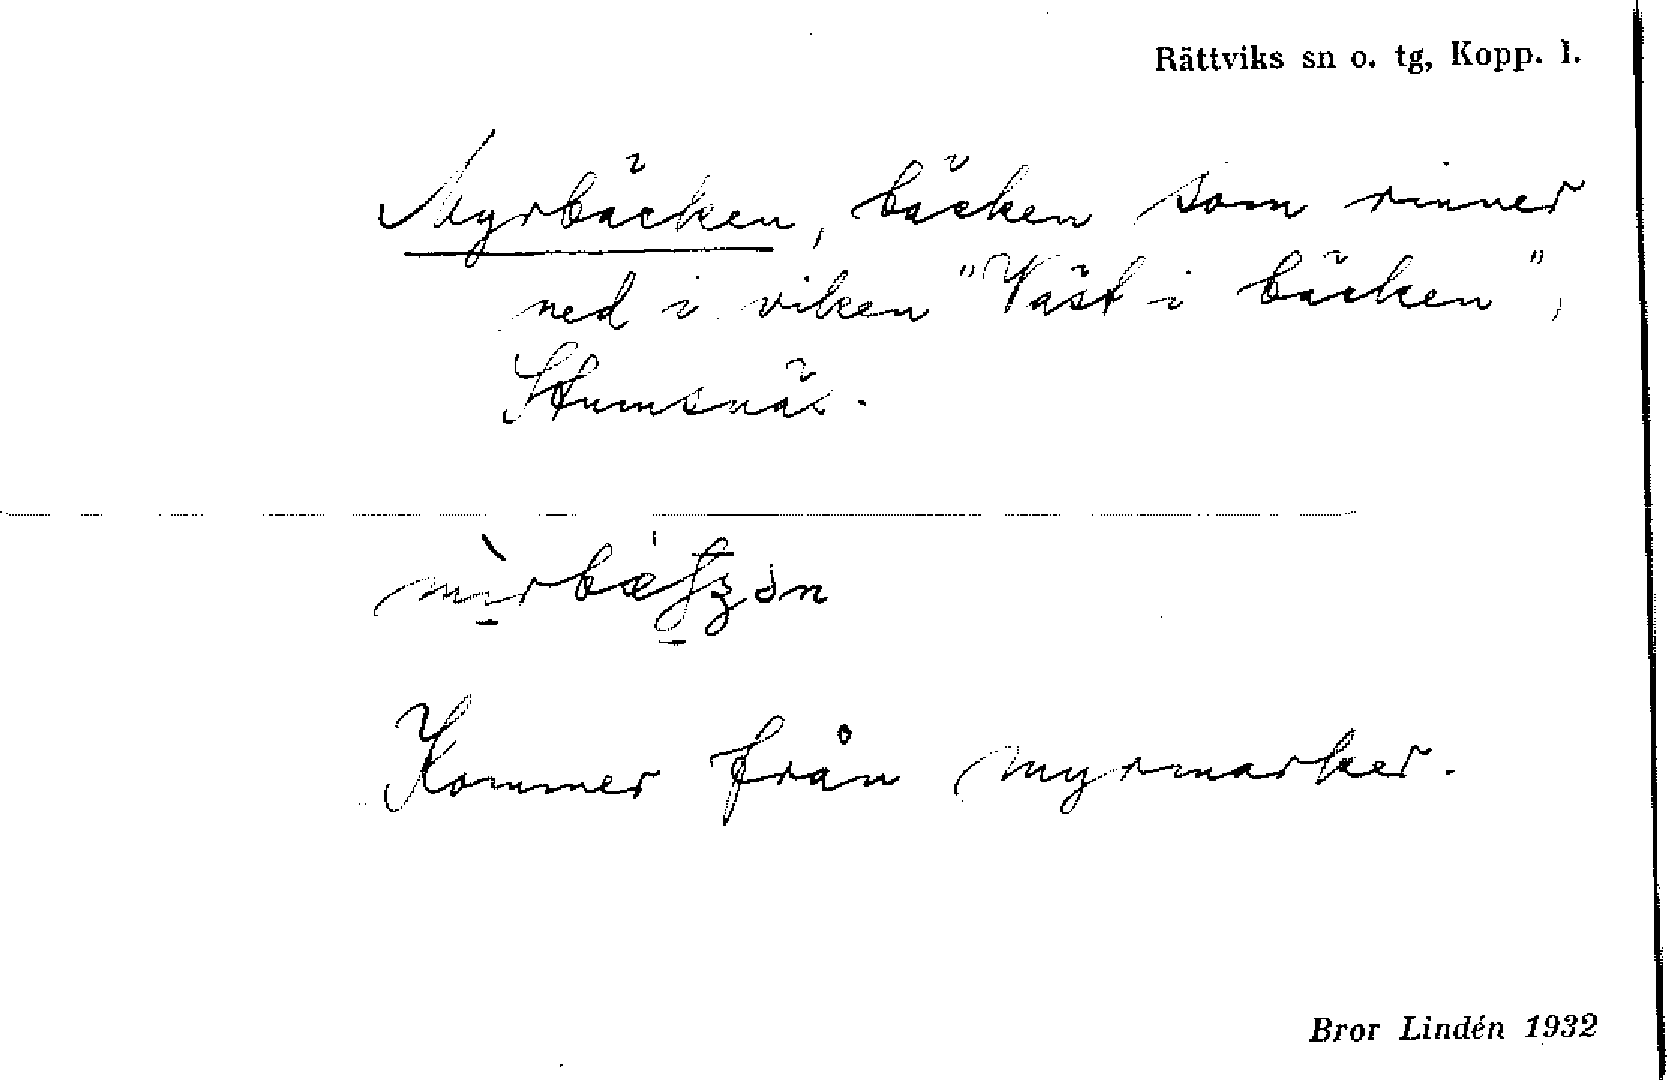 Rättviks sn o. tg, Kopp. l.
Myrbäcken, bäcken som rinner
ned i viken "Väst i bäcken",
Stumsnäs.
Kommer från myrmarker.
Bror Lindén 1932